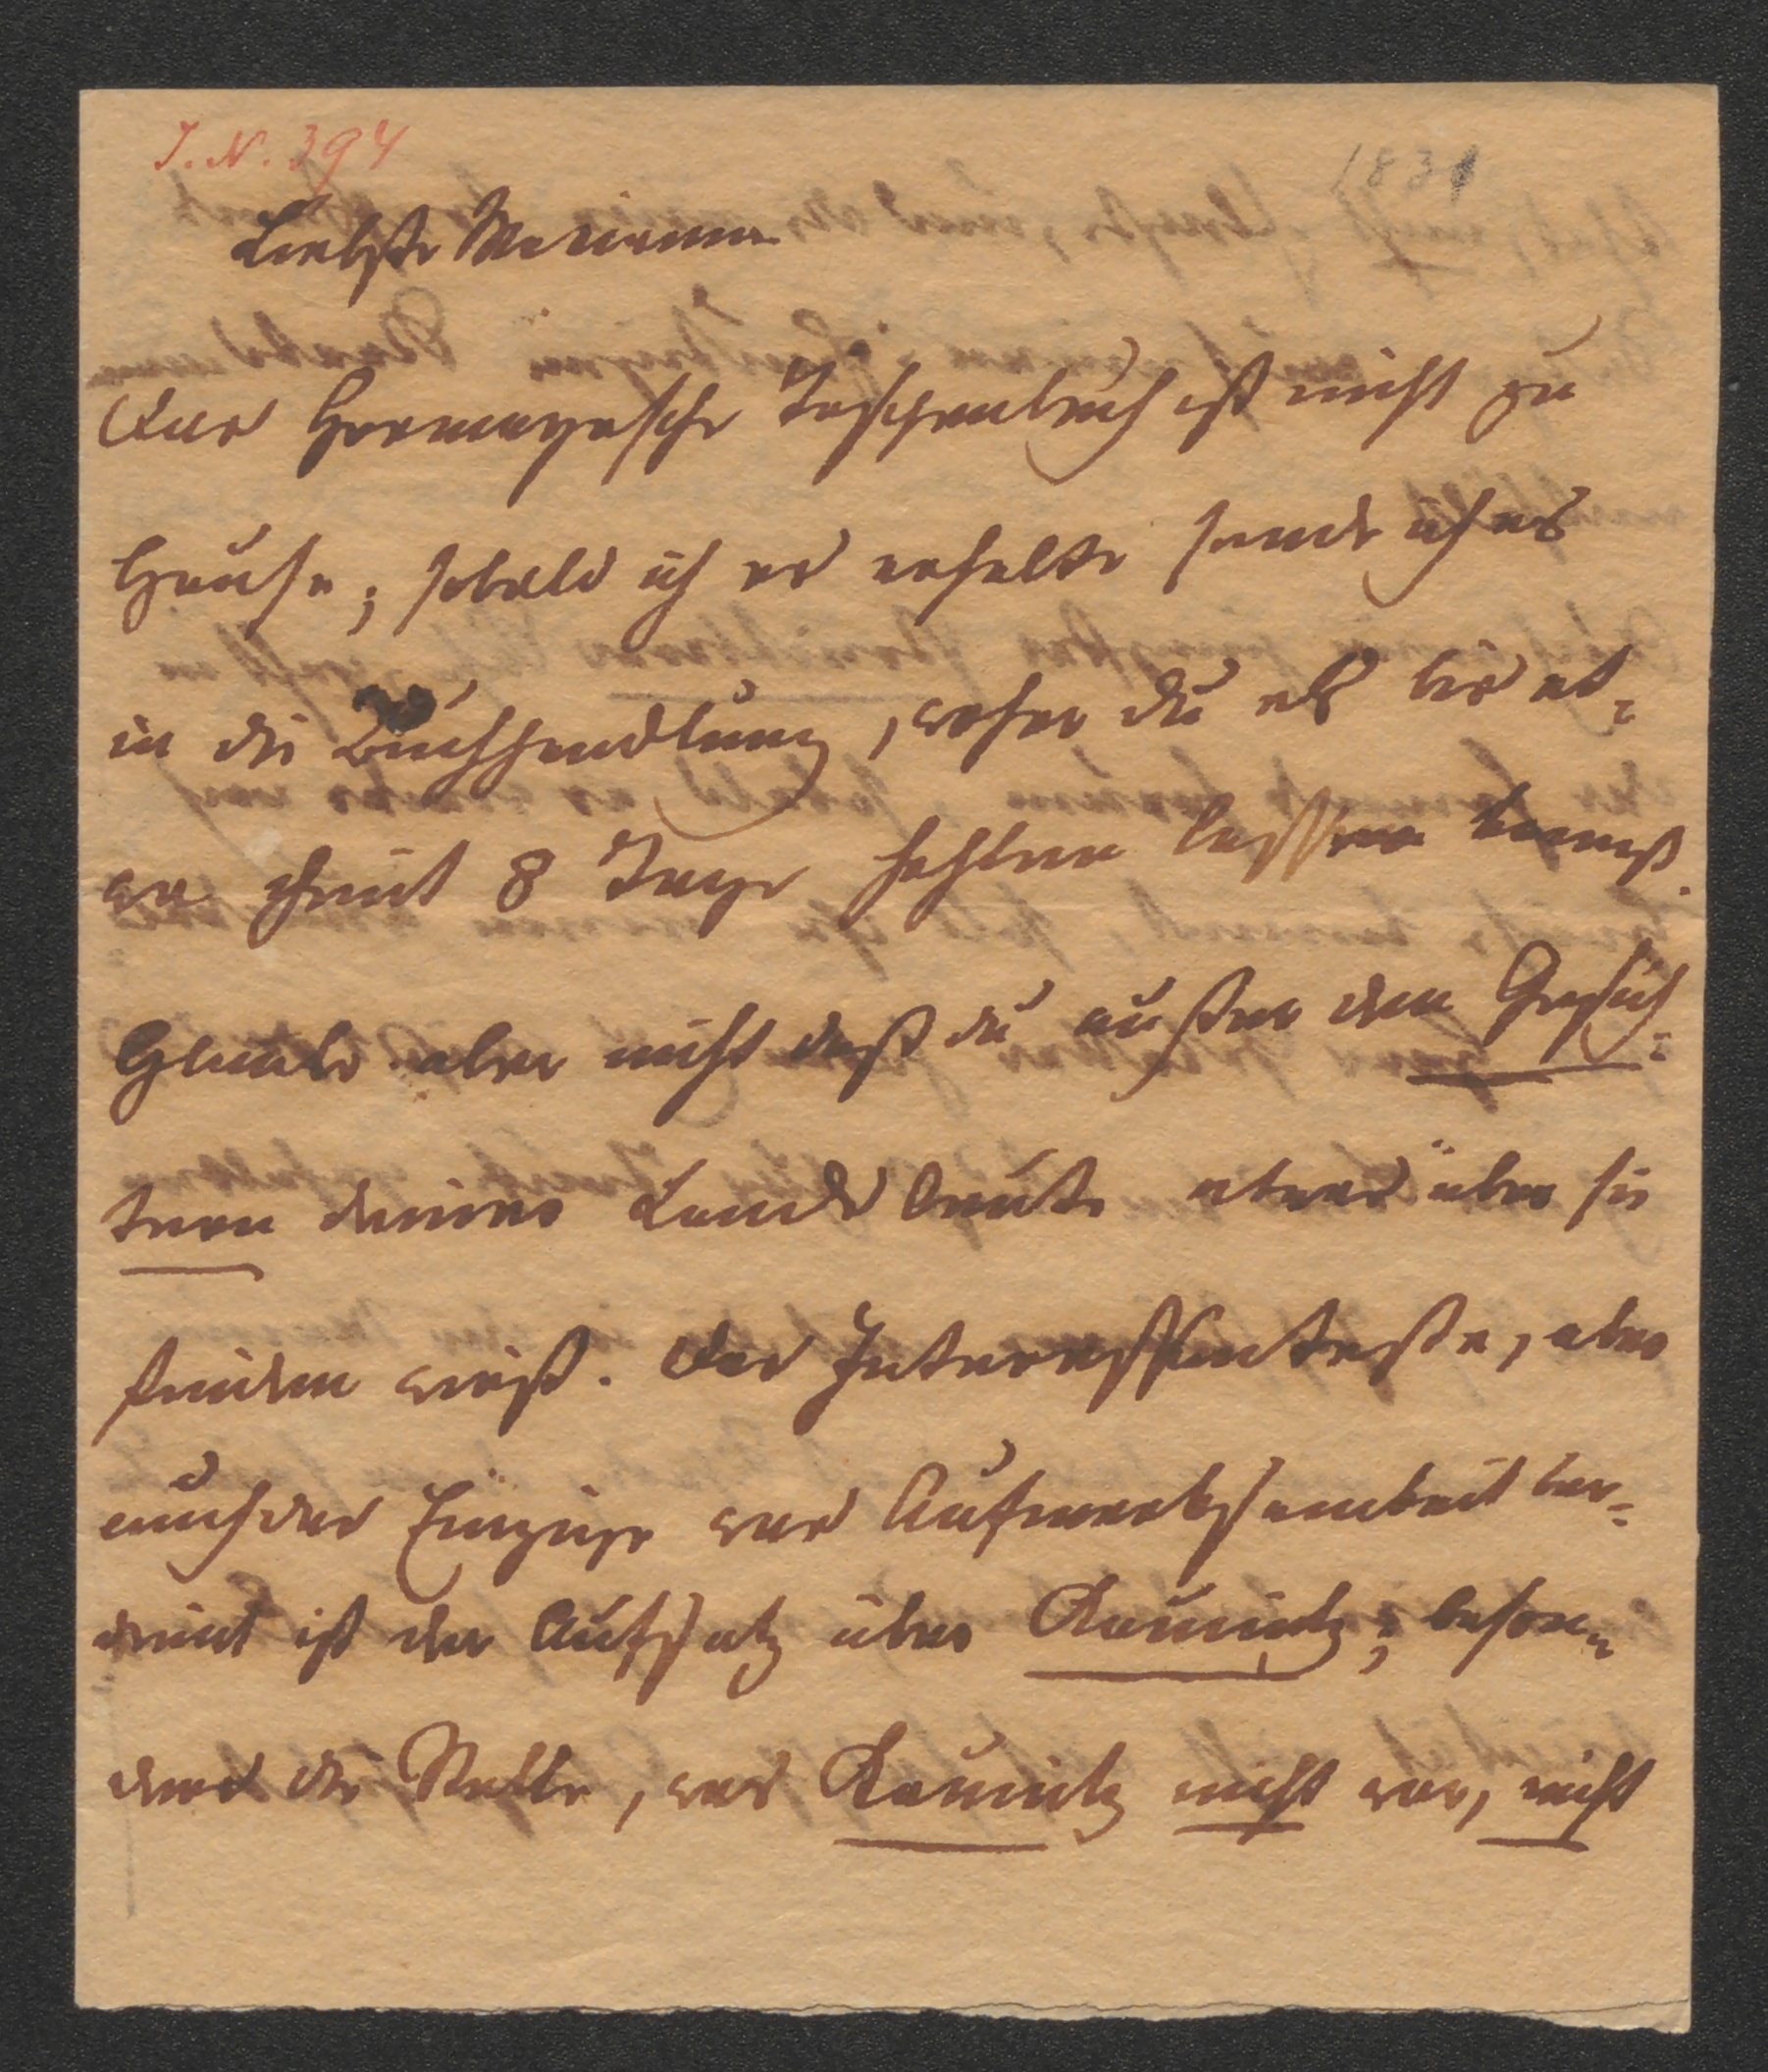 J. N. 394
1831
Liebste Marianne
Das Hormayrsche Taschenbuch ist nicht zu
Hause; sobald ich es erhalte sende ich es
in die Buchhandlung, woher du es bis et-
wa heut 8 Tage hohlen lassen kannst.
Glaube aber nicht daß du außer den Gesich-
tern deiner Landsleute etwas über sie
finden wirst. Das Interessanteste, aber
auch das Einzige was Aufmerksamkeit ver-
dient ist der Aufsatz über Kaunitz; beson-
ders die Stelle, was Kaunitz nicht war, nicht